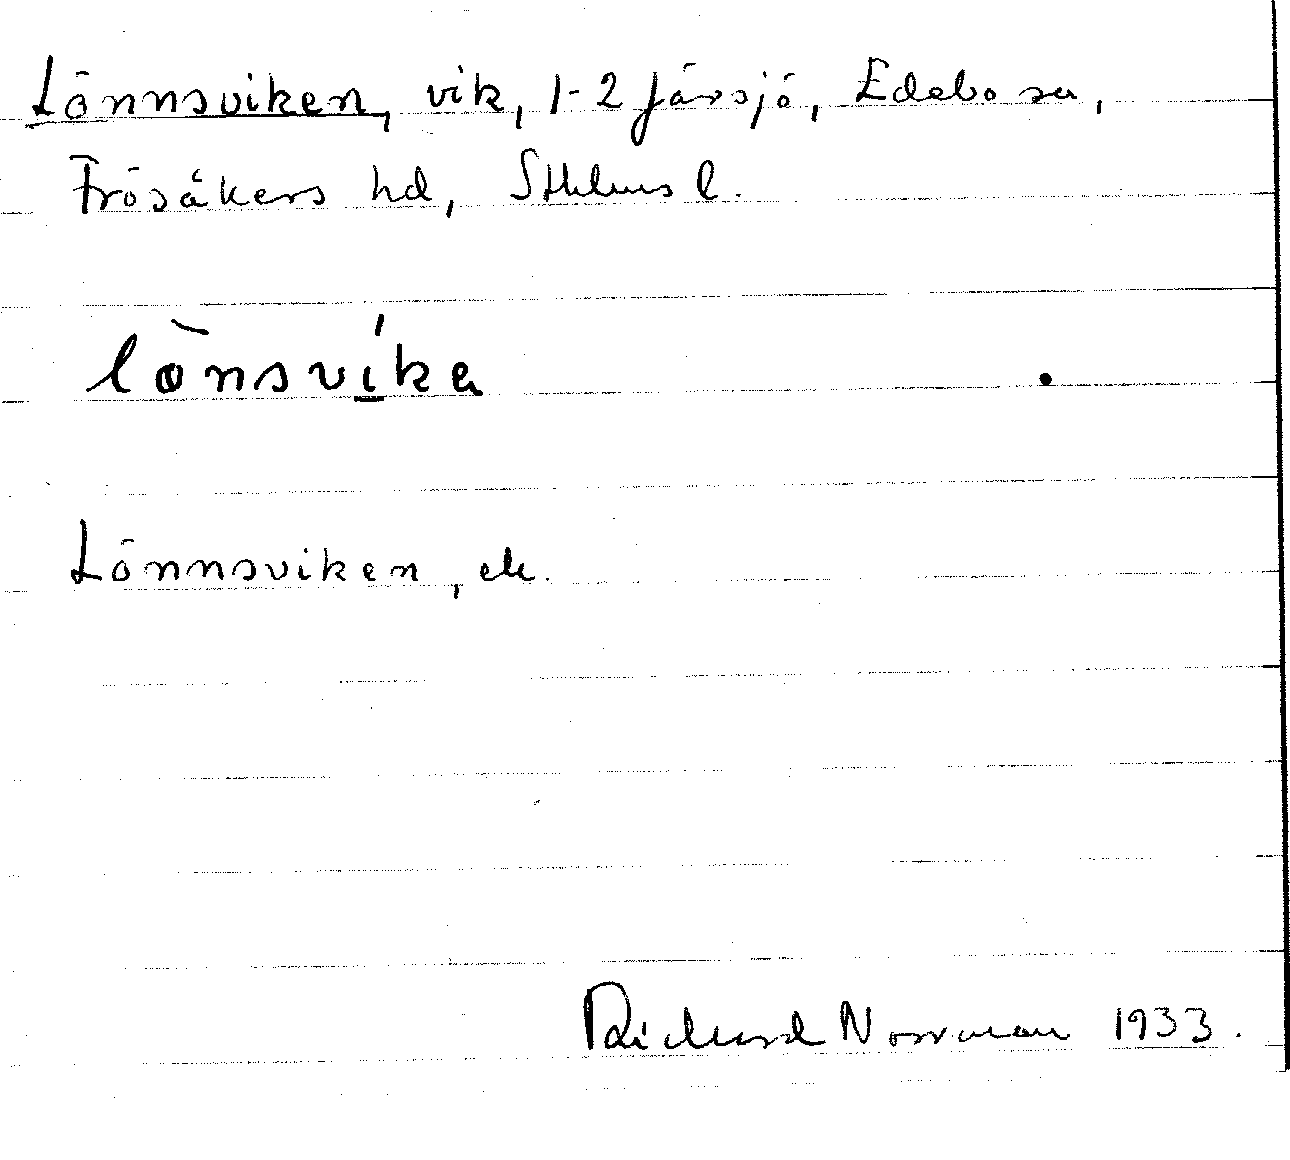 Lönnsviken, vik, 1-2 Järsjö, Edebo sn,
Frösåkers hd, Sthlms l.
lö̀nsví̲ka
Lönnsviken, ek.
Richard Norrman 1933.